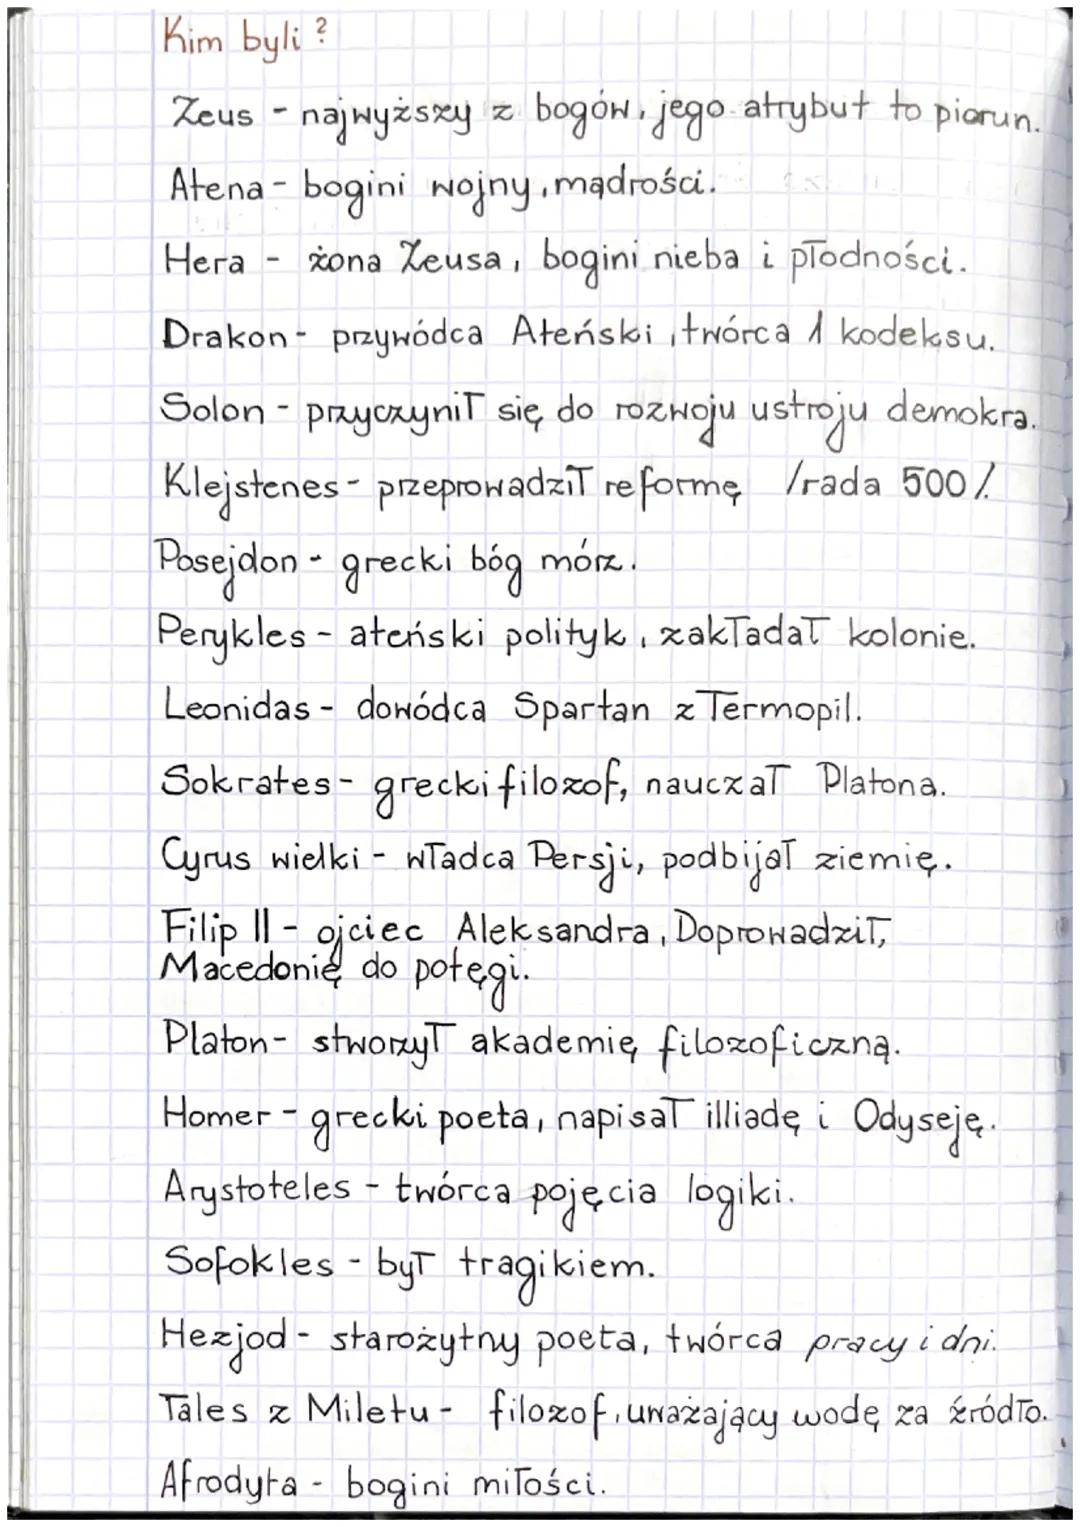 Kim byli?
Zeus - najwyższy z bogów, jego atrybut to piorun.
Atena - bogini wojny, mądrości.
Hera - żona Zeusa, bogini nieba i płodności.
Drakon - przywódca Ateński, twórca 1 kodeksu.
Solon - przyczynił się do rozwoju ustroju demokra.
Klejstenes - przeprowadził reformę /rada 500/.
Posejdon - grecki bóg mórz.
Perykles - ateński polityk, zakładał kolonie.
Leonidas - dowódca Spartan z Termopil.
Sokrates - grecki filozof, nauczał Platona.
Cyrus wielki - władca Persji, podbijał ziemię.
Filip II - ojciec Aleksandra, Doprowadził,
Macedonię do potęgi.
Platon - stworzył akademię filozoficzną.
Homer - grecki poeta, napisał illiadę i Odyseję.
Arystoteles - twórca pojęcia logiki.
Sofokles - był tragikiem.
Hezjod - starożytny poeta, twórca pracy i dni.
Tales z Miletu - filozof, uważający wodę za źródło.
Afrodyta - bogini miłości.